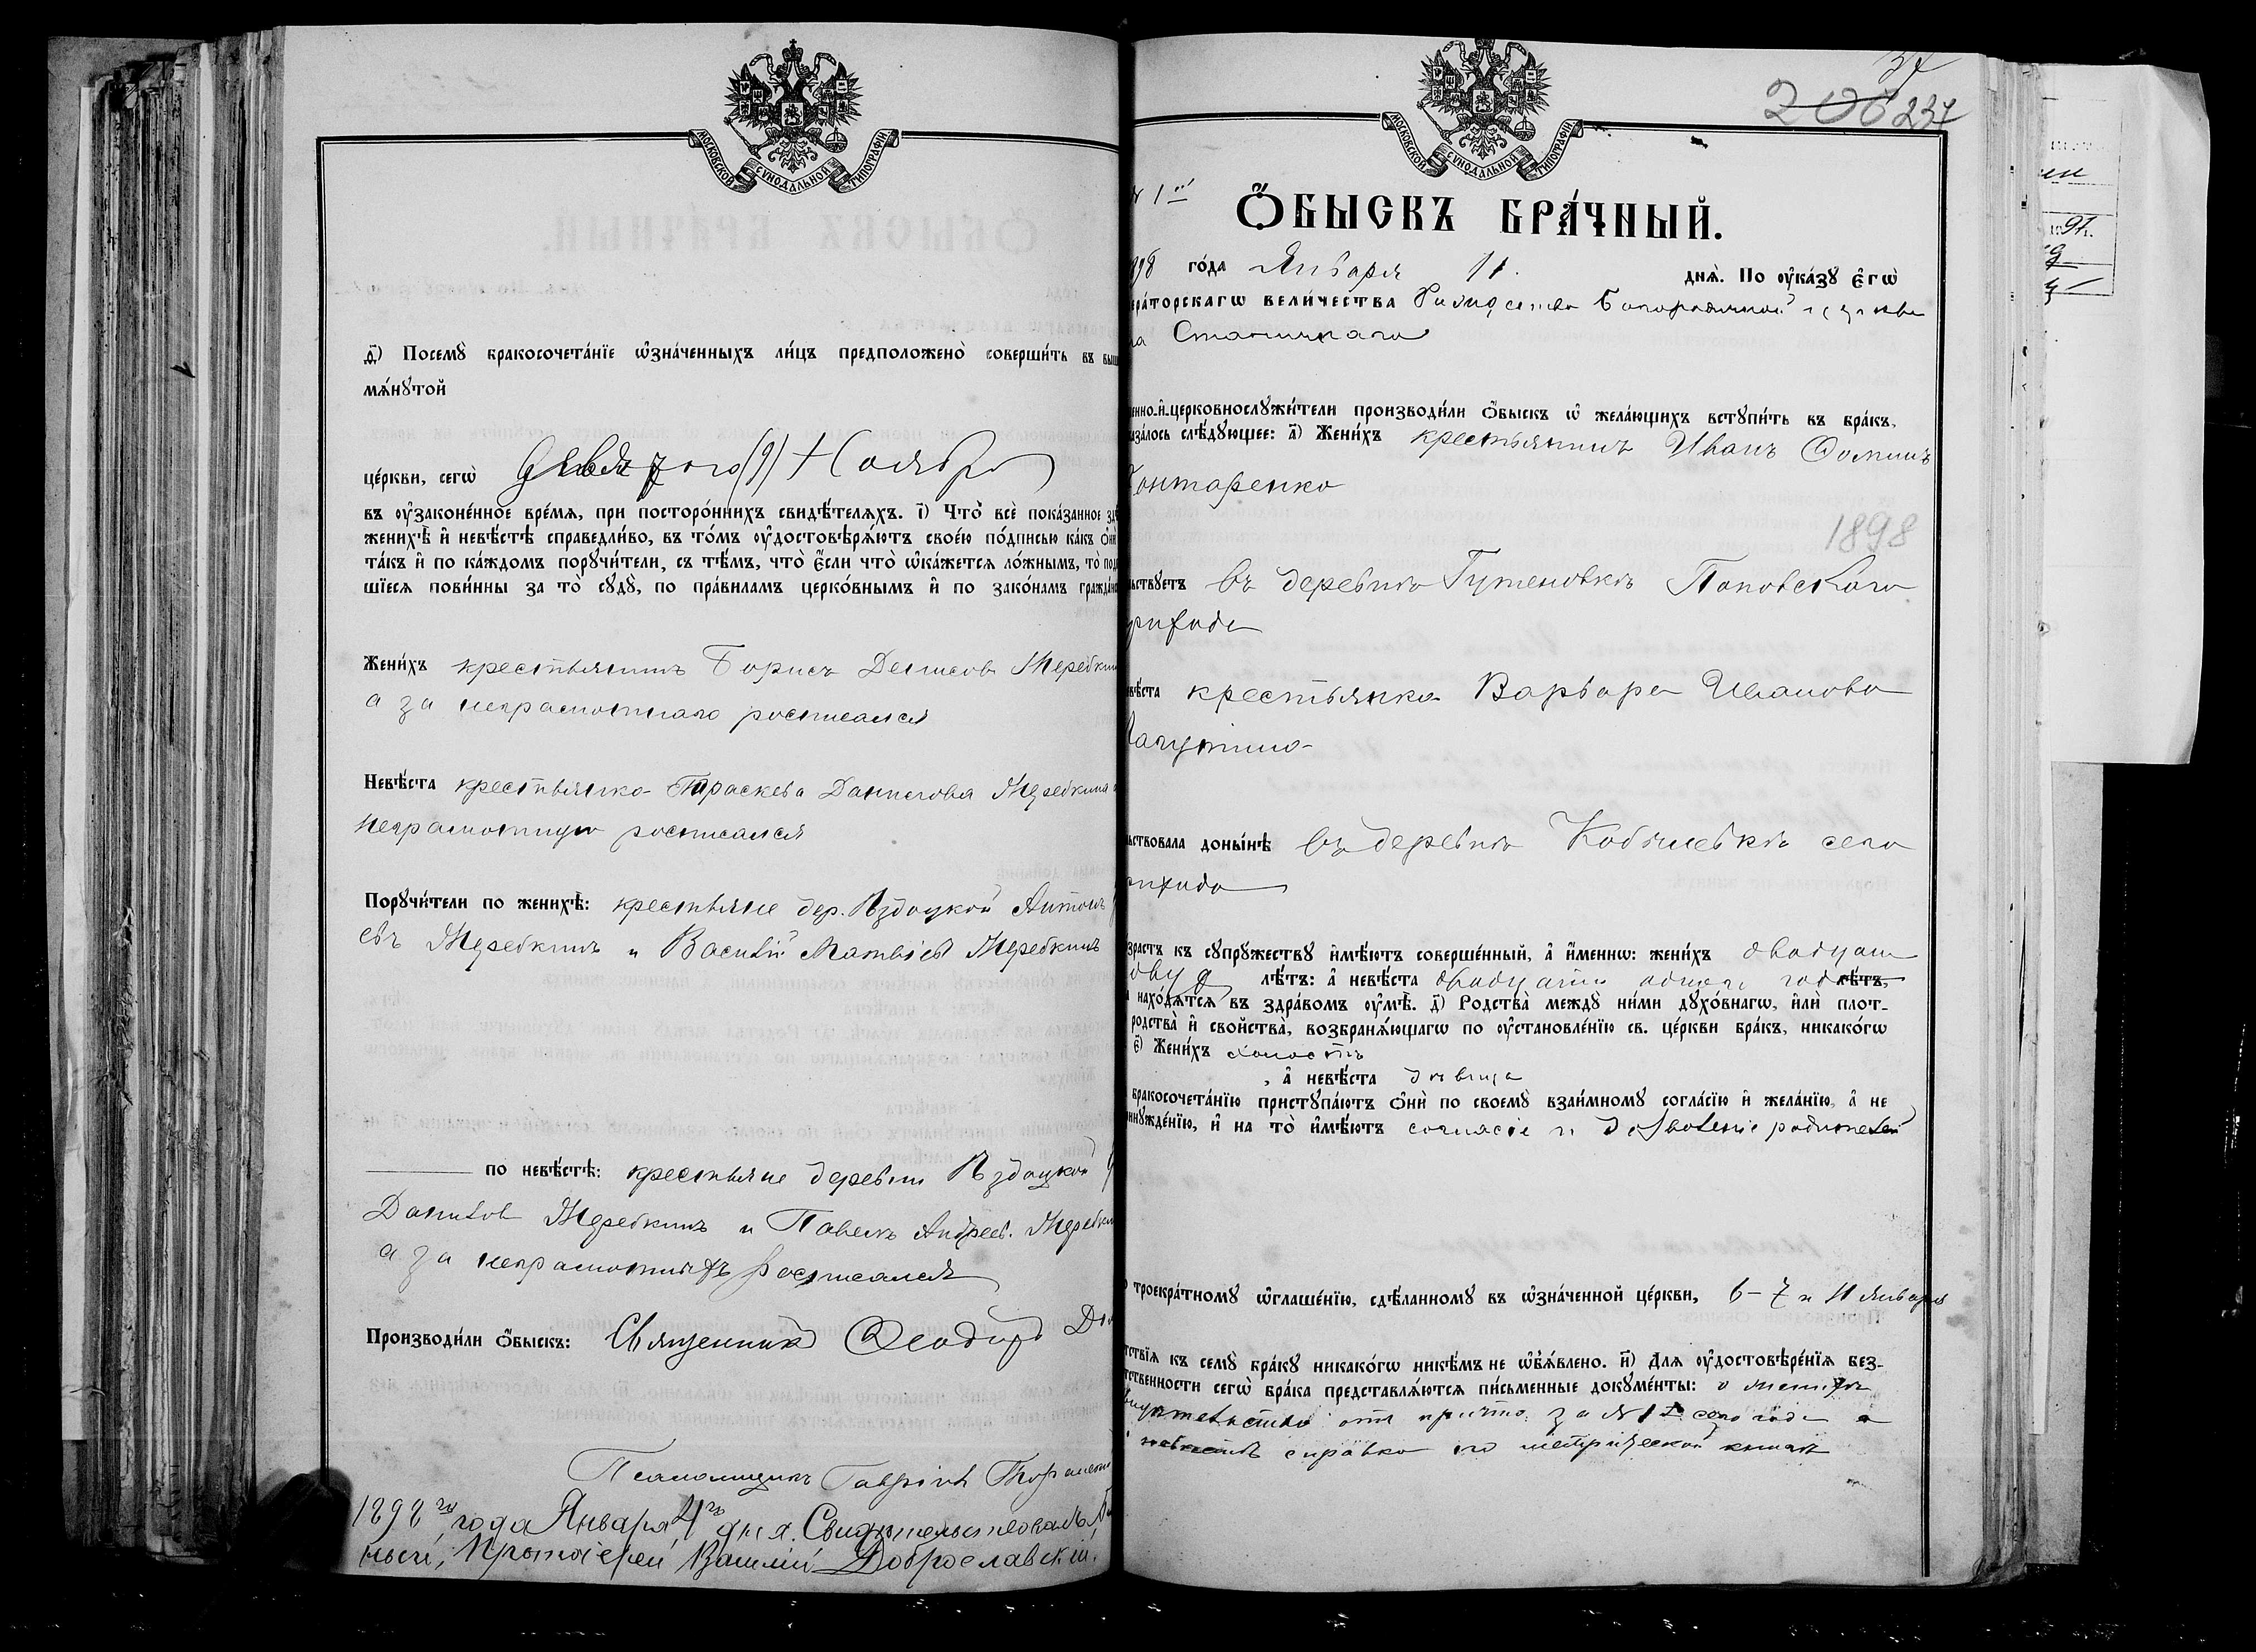 МОСКОВСКОЙ СУНОДАЛЬНОЙ ТИПОГРАФІИ
д҃і) Посемꙋ̀ бракосочета́нїе ѡ҆зна́ченныхъ ли́цъ предположено̀ соверши́ть въ выш
мѧ́нꙋтой
це́ркви, сегѡ̀ девятого (9) Ноября
въ ᲂу҆законе́нное вре́мѧ, при посторо́ннихъ свидѣ́телѧхъ. і҃) Что̀ всѐ пока́занное зд
женихѣ̀ и҆ невѣ́стѣ справедли́во, въ то́мъ ᲂу҆достовѣрѧ́ютъ свое́ю по́дписью ка́къ ѻ҆нѝ
та́къ и҆ по ка́ждомъ порꙋчи́тели, съ тѣ́мъ, что̀ є҆́сли что̀ ѡ҆ка́жетсѧ ло́жнымъ, то̀ под
шїесѧ пови́нны за то̀ сꙋдꙋ̀, по пра́виламъ церко́внымъ и҆ по зако́намъ гражда́нс
Жени́хъ крестьянинъ Борисъ Денисовъ Жеребкин
а за неграмотнаго росписался
Невѣ́ста крестьянка Праскева Данилова Жеребкина
неграмотную росписался
Порꙋчи́тели по женихѣ̀: крестьяне дер. Яздоцкой Антонъ
евъ Жеребкинъ и Василій Матвіевъ Жеребкинъ
по невѣ́стѣ: крестьяне деревни Яздоцкой
Данилов Жеребкинъ и Павелъ Андреев. Жеребкин
а за неграмотныхъ росписался
Производи́ли ѻ҆́быскъ: Священникъ Ѳеодоръ
Псаломщикъ Гавріилъ
1898 го года Января 4 го дня. Свидѣтельствовалъ, Б
ный, Протоіерей Василій Доброславскій.
МОСКОВСКОЙ СУНОДАЛЬНОЙ ТИПОГРАФІИ
37
206 237
№ 1й
Ѻ҆́БЫСКЪ БРА́ЧНЫЙ.
898 го́да Января 11. днѧ̀. По ᲂу҆ка́зꙋ є҆гѡ̀
ера́торскагѡ вели́чества Рождество Богородичной церкви
ла Становаго
енно-и҆-церковнослꙋжи́тели производи́ли ѻ҆́быскъ ѡ҆ жела́ющихъ встꙋпи́ть въ бра́къ,
аза́лось слѣ́дꙋющее: а҃) Жени́хъ крестьянинъ Иванъ Ѳоминъ
Гонтаренко
1898
ьствꙋетъ въ деревнѣ Гутеновкѣ Поповскаго
прихода
вѣ́ста крестьянка Варвара Иванова
Лагутина
ьствовала доны́нѣ въ деревнѣ Кобылевкѣ сего
прихода
зрастъ къ сꙋпрꙋжествꙋ и҆мѣ́ютъ соверше́нный, а҆ и҆́меннѡ: жени́хъ двадцати
двухъ лѣ́тъ: а҆ невѣ́ста двадцати одного год лѣ́тъ,
и нахо́дѧтсѧ въ здра́вомъ ᲂу҆мѣ̀. д҃) Родства̀ междꙋ̀ ни́ми дꙋхо́внагѡ, и҆лѝ плот-
родства̀ и҆ сво́йства̀, возбранѧ́ющагѡ по ᲂу҆становле́нїю св. це́ркви бра́къ, никако́гѡ
є҃) Жени́хъ холостъ
, а҆ невѣ́ста дѣвица
бракосочета́нїю пристꙋпа́ютъ ѻ҆нѝ по своемꙋ̀ взаи́мномꙋ согла́сїю и҆ жела́нїю, а҆ не
инꙋжде́нїю, и҆ на то̀ и҆мѣ́ютъ согласіе и дозволеніе родителей
о троекра́тномꙋ ѡ҆глаше́нїю, сдѣ́ланномꙋ въ ѡ҆зна́ченной це́ркви, 6 - 7 и 11 января
тствїѧ къ семꙋ̀ бра́кꙋ никако́гѡ никѣ́мъ не ѡ҆б̾ѧ́влено. и҃) Длѧ ᲂу҆достовѣре́нїѧ без-
тственности сегѡ̀ бра́ка представлѧ́ютсѧ пи́сьменные докꙋме́нты: о женихѣ
свидѣтельство отъ причта за № 12 сего года а
о невѣстѣ справка по метрической книгѣ